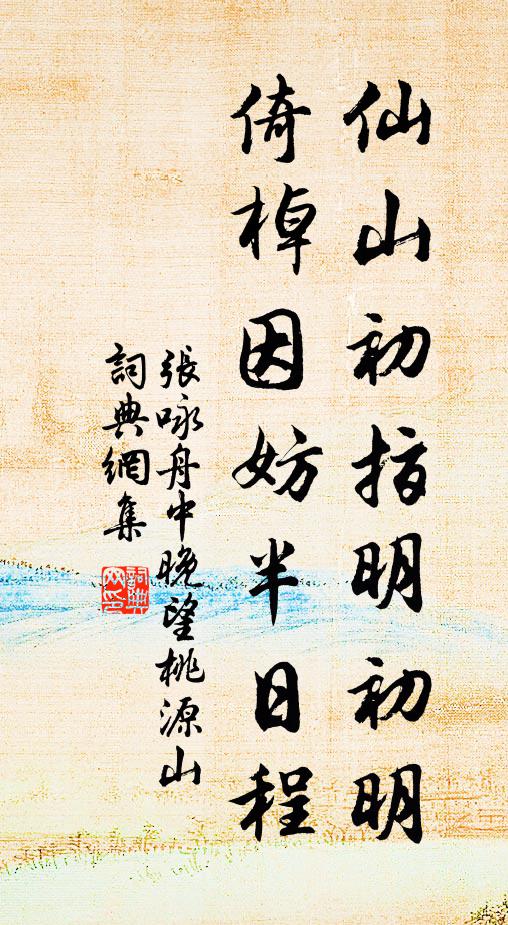 仙山初指明初明
倚棹因妨半日程
張咏舟中晚望桃源山
詞典網集
詞典